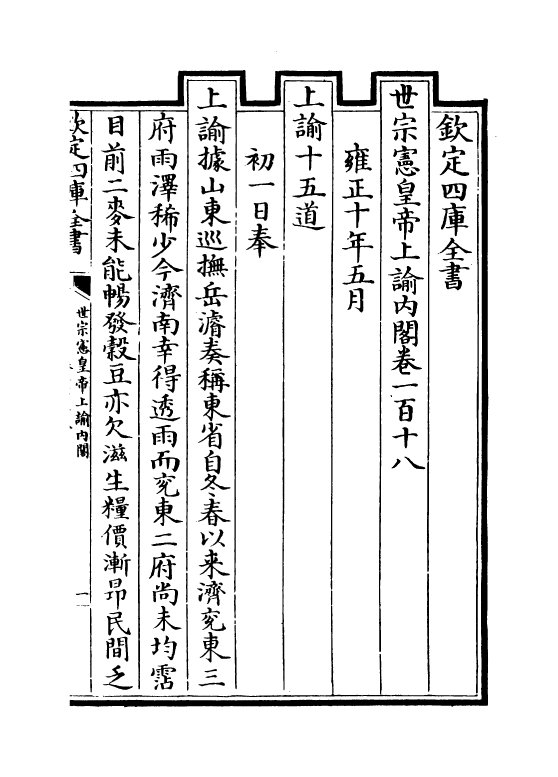 欽定四庫全書
世宗憲皇帝上諭內閣卷一百十八
雍正十年五月
上諭十五道
初一日奉
上諭據山東巡撫岳濬奏稱東省自冬春以来濟兖東三
府雨澤稀少今濟南幸得透雨而兖東二府尚未均霑
目前二麥未能暢發穀豆亦欠滋生糧價漸昂民間乏
欽定四庫全書
世宗憲皇帝上諭內閣
一